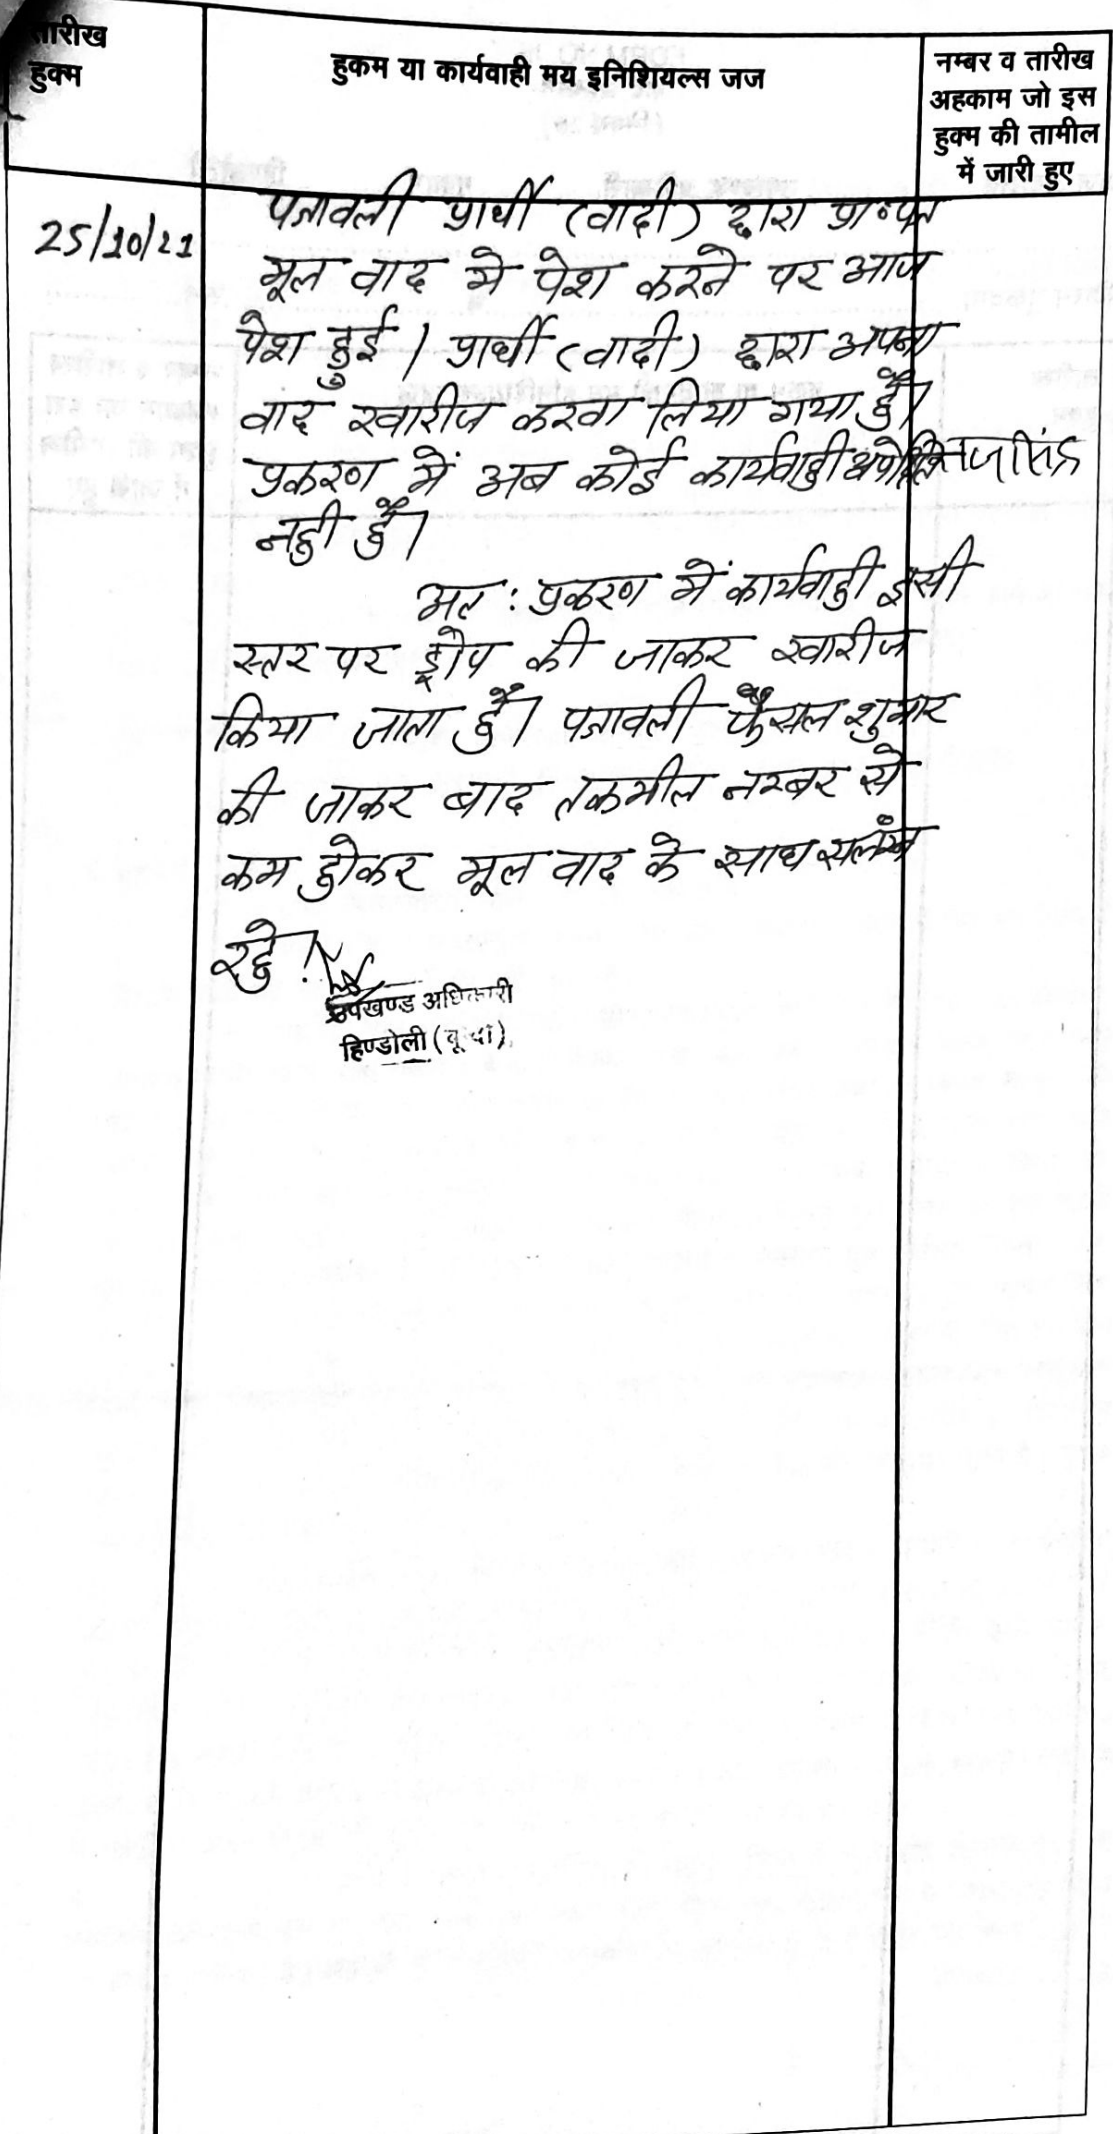 तारीख
हुक्म
हुकम या कार्यवाही मय इनिशियल्स जज
नम्बर व तारीख
अहकाम जो इस
हुक्म की तामील
में जारी हुए
25/10/21
पत्रावली प्रार्थी (वादी) द्वारा प्रा०पत्र
मूल वाद मे पेश करने पर आज
पेश हुई। प्रार्थी (वादी) द्वारा अपना
वाद खारीज करवा लिया गया हैं।
प्रकरण में अब कोई कार्यवाही अपेक्षित
नही हैं।
अत: प्रकरण में कार्यवाही इसी
स्तर पर ड्रोप की जाकर खारीज
किया जाता हैं। पत्रावली फैंसल शुमार
की जाकर बाद तकमील नम्बर से
कम होकर मूल वाद के साथ सलंग्न
रहे।
उपखण्ड अधिकारी
हिण्डोली (बून्दी)